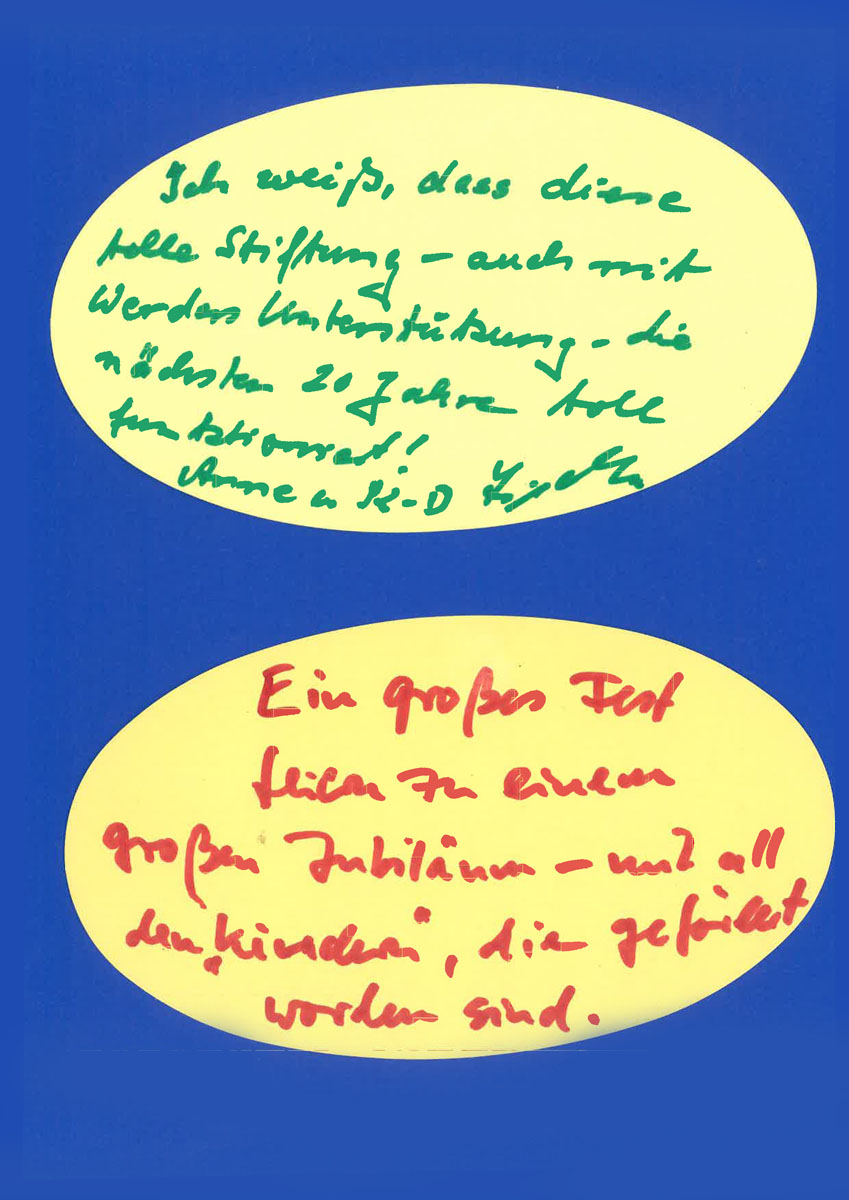 Ich weiß, dass diese
tolle Stiftung – auch mit
Werders Unterstützung – die
nächsten 20 Jahre toll
funktioniert!
Anne u K-D
Ein großes Fest
feiern zu einem
großen Jubiläum – mit all
den „Kindern“, die gefördert
worden sind.